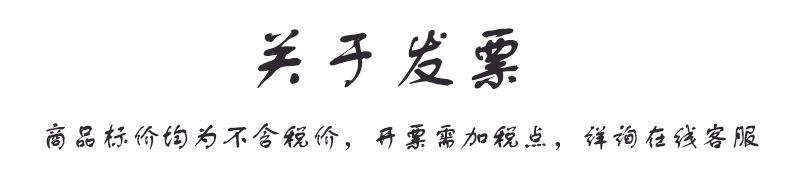 关于发票
商品标价均为不含税价，开票需加税点，详询在线客服